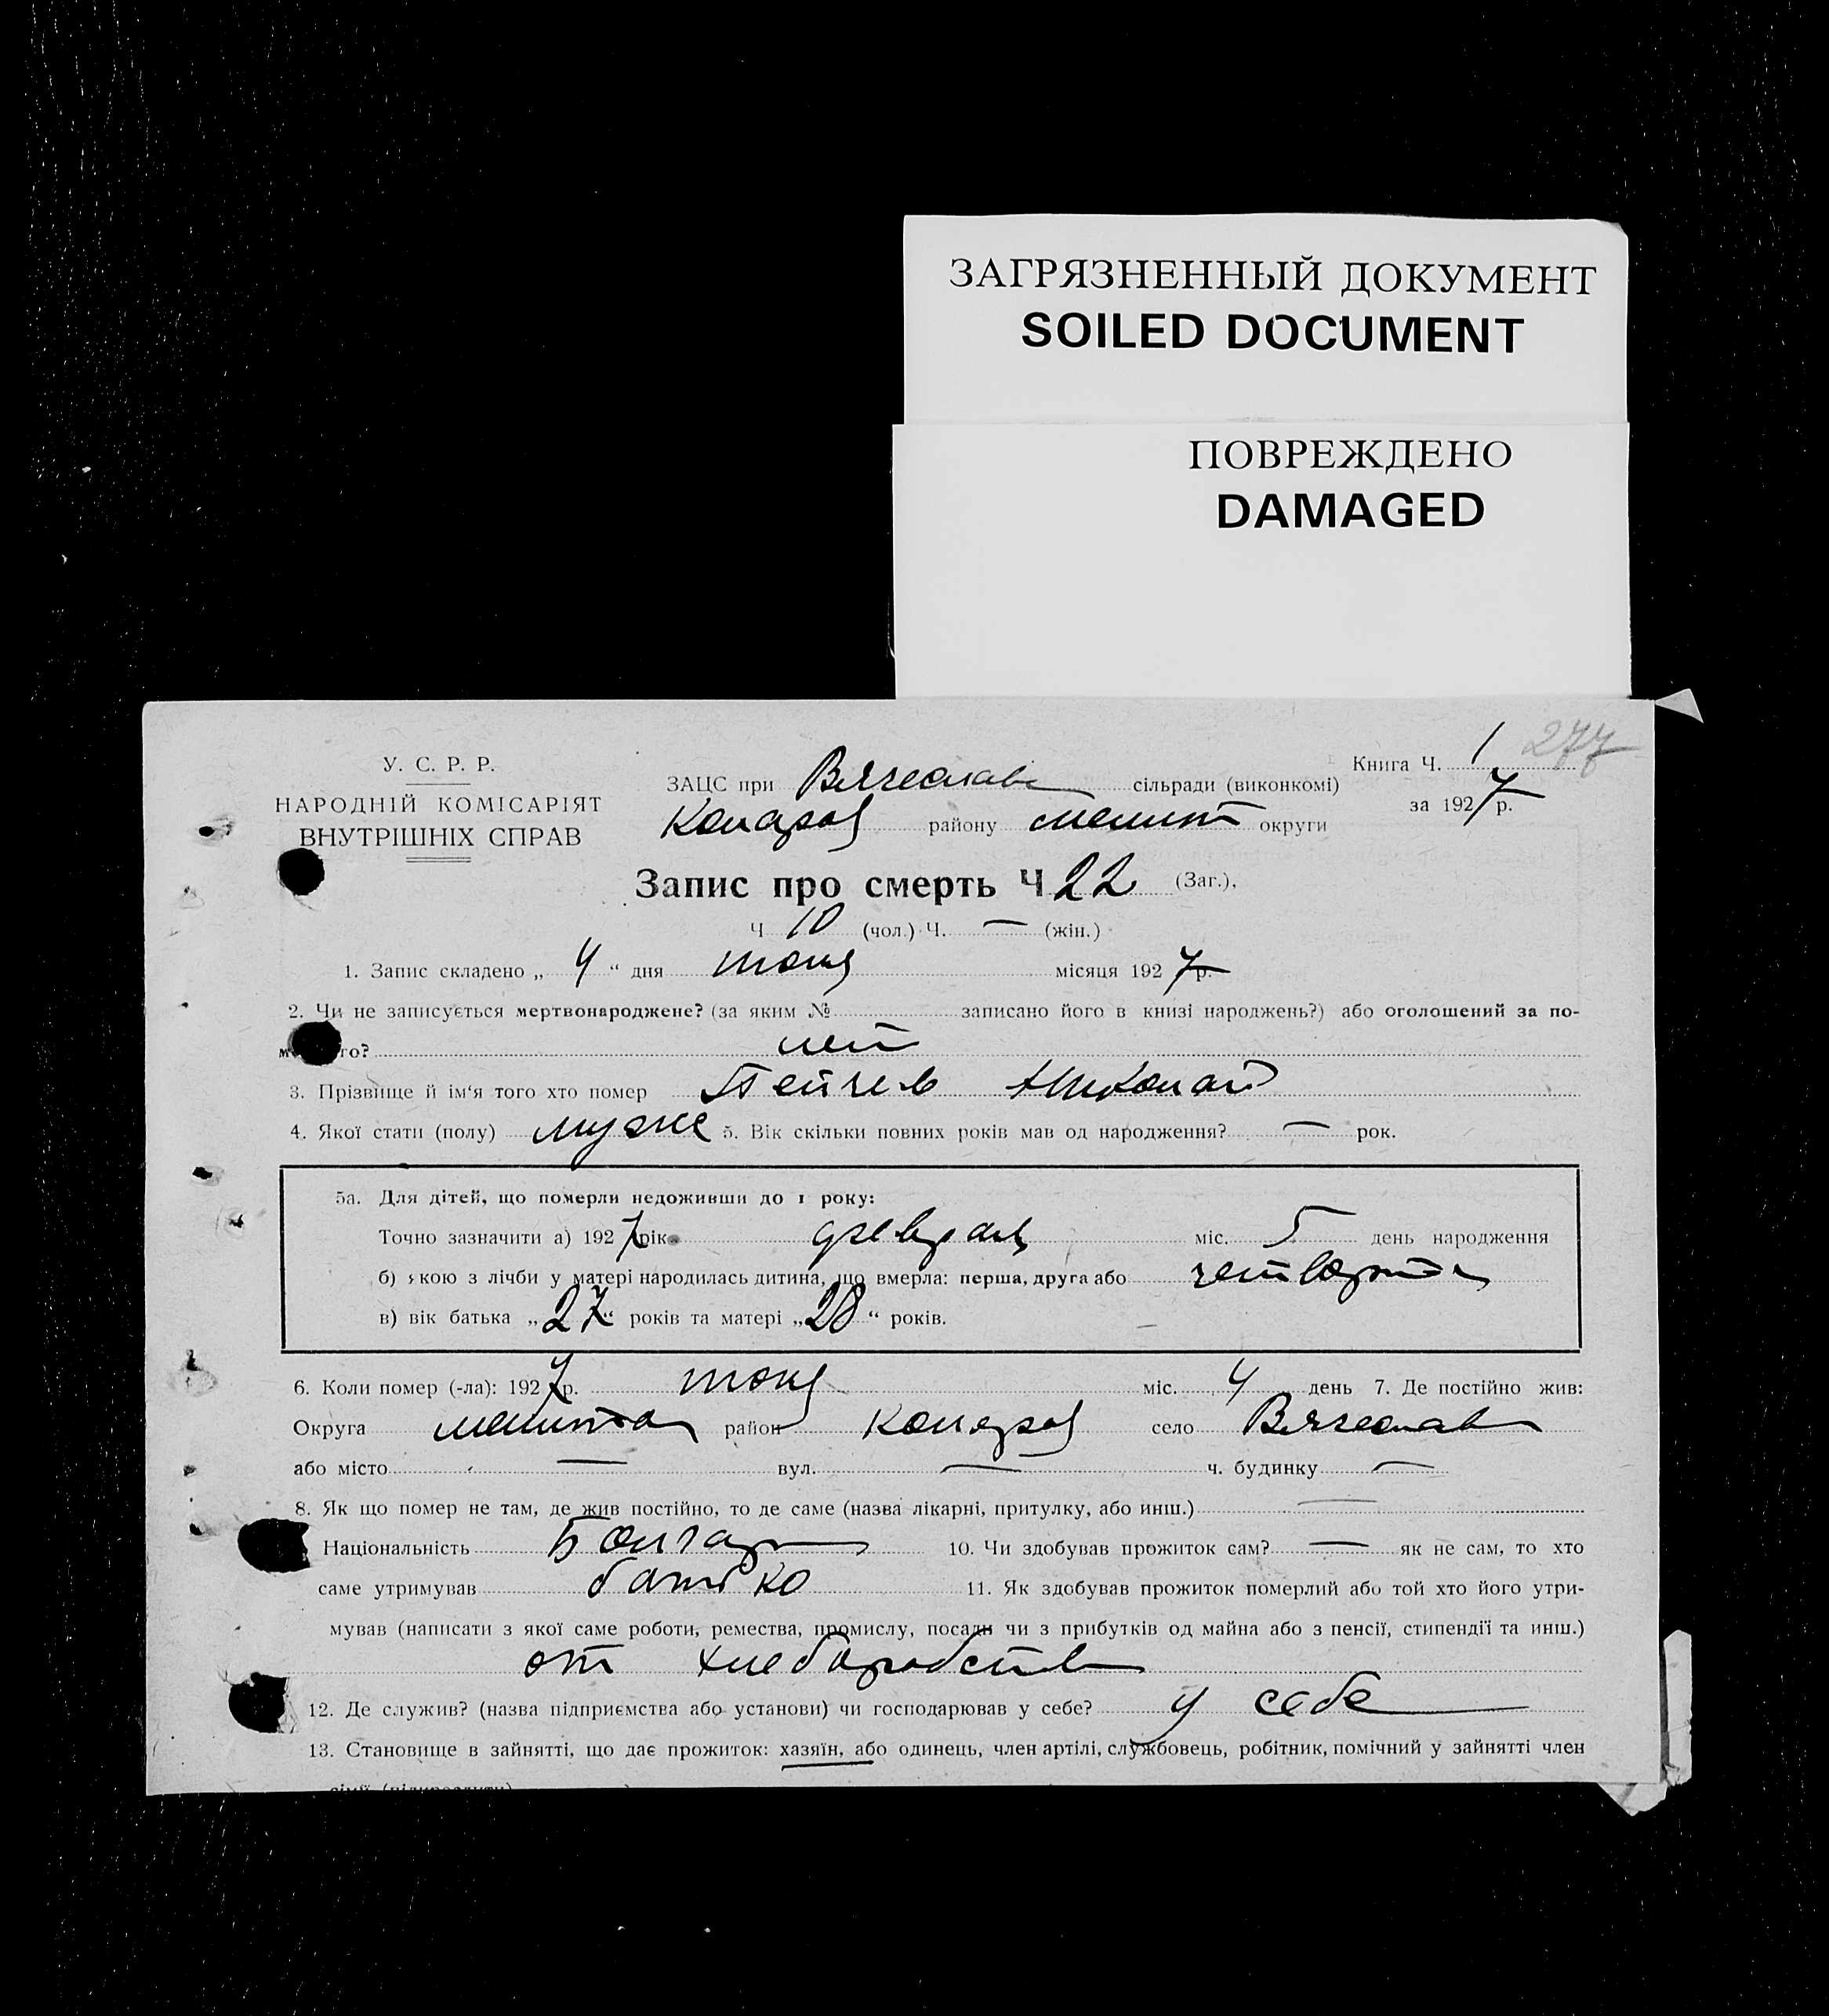 ЗАГРЯЗНЕННЫЙ ДОКУМЕНТ
SOILED DOCUMENT
ПОВРЕЖДЕНО
DAMAGED
277
У. С. Р. Р.
НАРОДНІЙ КОМІСАРІЯТ
ВНУТРІШНІХ СПРАВ
ЗАЦС при Вячеслав сільради (виконкомі)
Коларов району мелит округи
Книга Ч. 1
за 1927 р.
Запис про смерть Ч 22 (Заг.),
Ч 10 (чол.) Ч. — (жін.)
1. Запис складено „ 4 “ дня июня місяця 1927 р.
2. Чи не записується мертвонароджене? (за яким № записано його в книзі народжень?) або оголошений за по-
го? нет
3. Прізвище й ім‘я того хто помер Пейчев Николай
4. Якої стати (полу) мужс 5. Вік скільки повних років мав од народження? — рок.
5а. Для дітей, що померли недоживши до 1 року:
Точно зазначити а) 1927 рік февраль міс. 5 день народження
б) якою з лічби у матері народилась дитина, що вмерла: перша, друга або четверта
в) вік батька „27“ років та матері „28“ років.
6. Коли помер (-ла): 1927 р. июня міс. 4 день 7. Де постійно жив:
Округа мелитоп район Коларов село Вячеслав
або місто — вул. — ч. будинку —
8. Як що помер не там, де жив постійно, то де саме (назва лікарні, притулку, або инш.) —
Національність Болгар 10. Чи здобував прожиток сам? — як не сам, то хто
саме утримував батько 11. Як здобував прожиток померлий або той хто його утри-
мував (написати з якої саме роботи, ремества, промислу, посади чи з прибутків од майна або з пенсії, стипендії та инш.)
от хлеборобств
12. Де служив? (назва підприємства або установи) чи господарював у себе? у себе
13. Становище в зайнятті, що дає прожиток: хазяїн, або одинець, член артілі, службовець, робітник, помічний у зайнятті член